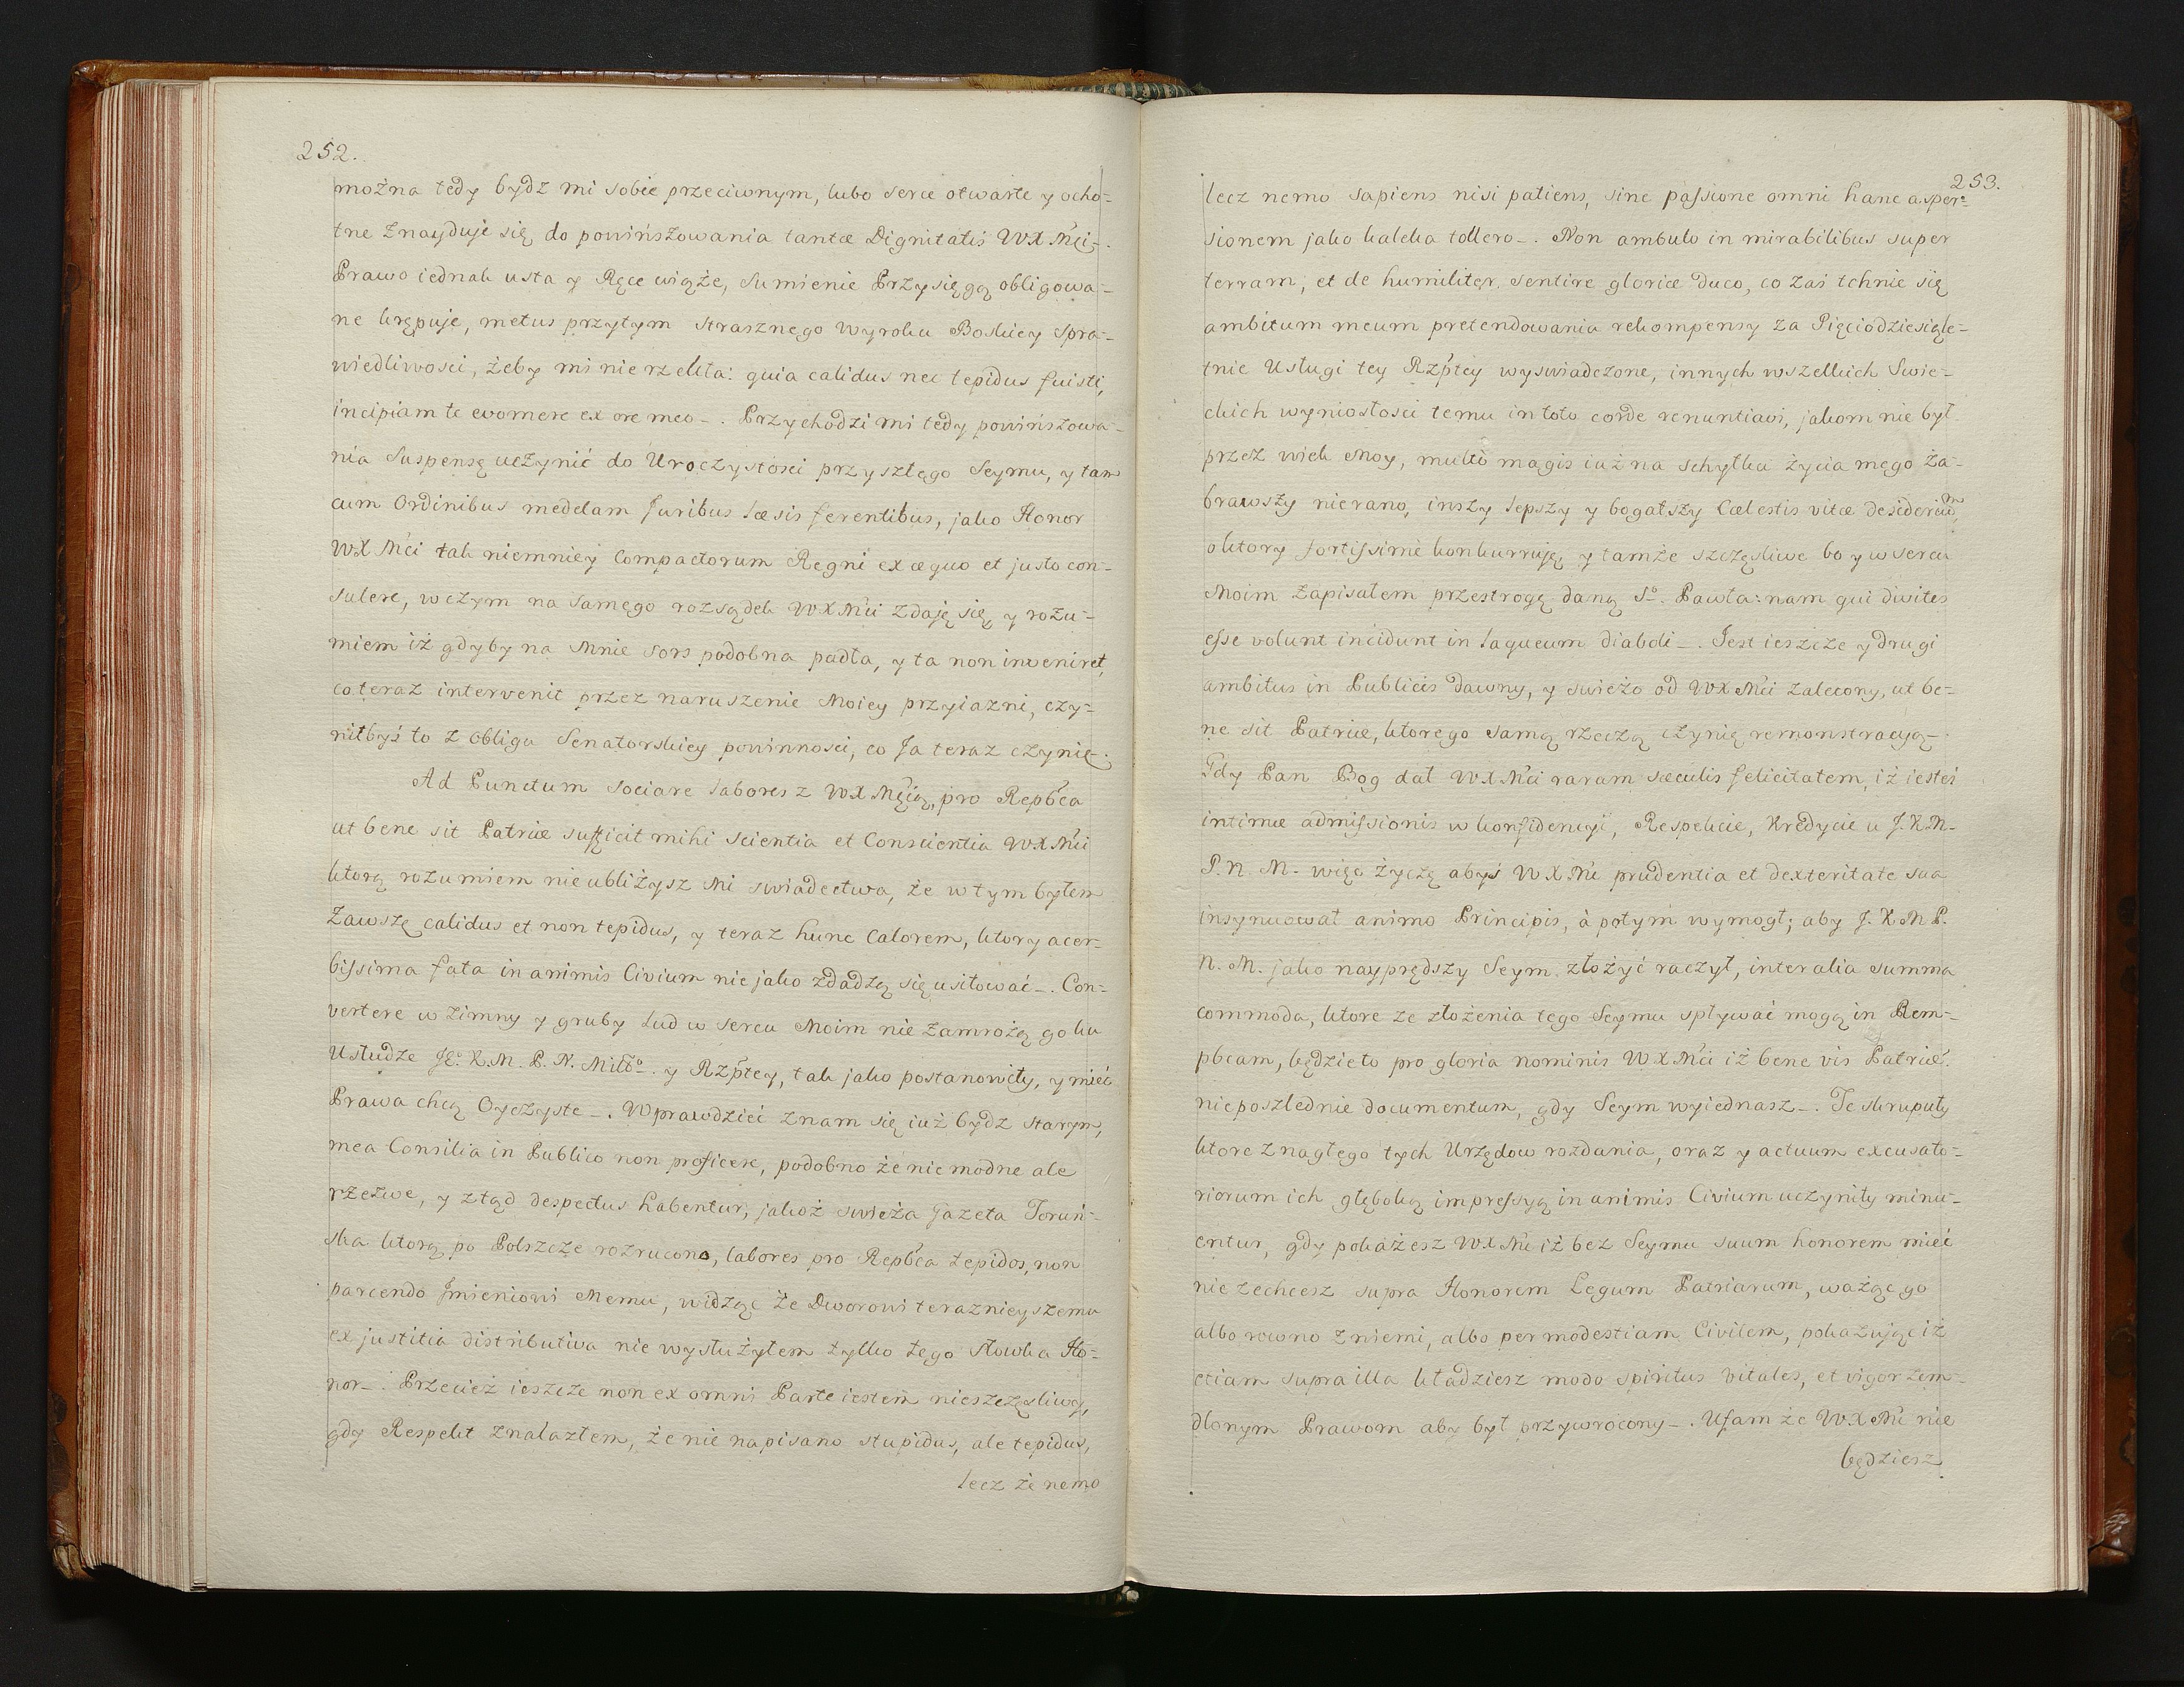 252.
można tedy bydz mi sobie przeciwnym, lubo serce otwarte y ocho=
tne znayduje się do powińszowania tantæ Dignitatis WX Mci-.
Prawo iednak usta y Ręce wiąże, sumienie Przysięgą obligowa=
ne krępuje, metus przytym strasznego wyroku Boskiey Spra=
wiedliwości, żeby mi nie rzekła: quia calidus nec tepidus fuisti,
incipiam te evomere ex ore meo-. Przychodzi mi tedy powińszowa=
nia suspensę uczynić do Uroczystości przyszłego Seymu, y tam
cum Ordinibus medelam Juribus læsis ferentibus, jako Honor
WX Mci tak niemniey Compactorum Regni ex æquo et justo con=
sulere, w czym na samego rozsądek WX Mci zdaję się, y rozu=
miem iż gdyby na Mnie sors podobna padła, y ta non inveniret,
co teraz intervenit przez naruszenie Moiey przyiazni, czy=
niłbyś to z obligu Senatorskiey powinnosci, co Ja teraz czynię-.
Ad Punctum sociare labores z WX Mcią, pro Repb'ca
ut bene sit Patriæ sufficit mihi scientia et Conscientia WX Mci
ktorą rozumiem nieubliżysz Mi swiadectwa, że w tym byłem
zawszę calidus et non tepidus, y teraz hunc Calorem, ktory acer=
bissima fata in animis Civium nie jako zdadzą się usiłować-. Con=
vertere w zimny y gruby lud w sercu Moim nie zamrożą go ku
Usłudze Jeo. K. M. P. N. Miłgo. y Rzptey, tak jako postanowiły, y mieć
Prawa chcą Oyczyste-. Wprawdzieć znam się iuż bydz starym,
mea Consilia in Publico non proficere, podobno że nie modne ale
rzezwe, y ztąd despectus habentur, jakoż swieża Gazeta Toruń=
ska ktorą po Polszcze rozrucono, labores pro Repb'ca tepidos, non
parcendo Jmieniowi Memu, widzę że Dworowi teraznieyszemu
ex justitia distributiva nie wysłużyłem tylko tego słowka Ho=
nor-. Przecież ieszcze non ex omni Parte iestem nieszczęśliwy,
gdy Respekt znalazłem, że nie napisano stupidus, ale tepidus,
lecz że nemo
253.
lecz nemo sapiens nisi patiens, sine passione omni hanc asper=
sionem jako kaleka tollero-. Non ambulo in mirabilibus super
terram, et de humiliter sentire gloriæ duco, co zaś tchnie się
ambitum meum pretendowania rekompensy za Pięciodziesiątle=
tnie Usługi tey Rzptey wyswiadczone, innych wszelkich Swie=
ckich wyniosłosci temu in toto corde renuntiavi, jakom nie był
przez wiek Moy, multò magis iuż na schyłku życia mego za=
brawszy nierano, inszy lepszy y bogatszy Cælestis vitæ desiderium,
o ktory fortissimè konkurruję y tamże szczęsliwe bo y w sercu
Moim zapisałem przestrogę daną So. Pawła: nam qui divites
esse volunt incidunt in laqueum diaboli-. Jest ieszcze y drugi
ambitus in Publicis dawny, y swieżo od WX Mci zalecony, ut be=
ne sit Patriæ, ktorego samą rzeczą czynię remonstracyą-.
Gdy Pan Bog dał WX Mci raram sæculis felicitatem, iż iesteś
intimæ admissionis w konfidencyi, Respekcie, Kredycie u J. K. M.
P. N. M. więc życzę abyś WX Mć prudentia et dexteritate sua
insynuował animo Principis, à potym wymogł; aby J. K. M. P.
N. M. jako nayprędszy Seym złożyć raczył, inter alia summa
commoda, ktore ze złożenia tego Seymu spływać mogą in Rem=
pbcam, będzie to pro gloria nominis WX Mci iż bene vis Patriæ.
niepoślednie documentum, gdy Seym wyiednasz-. Te skrupuły
ktore z nagłego tych Urzędow rozdania, oraz y actuum excusato=
riorum ich głęboką impressyą in animis Civium uczyniły minu=
entur, gdy pokażesz WX Mć iż bez Seymu suum honorem mieć
nie zechcesz supra Honorem Legum Patriarum, ważąc go
albo rowno z niemi, albo per modestiam Civilem, pokazując iż
etiam supra illa kładziesz modo spiritus vitales, et vigor zem=
dlonym Prawom aby był przywrocony-. Ufam że WX Mć nie
będziesz